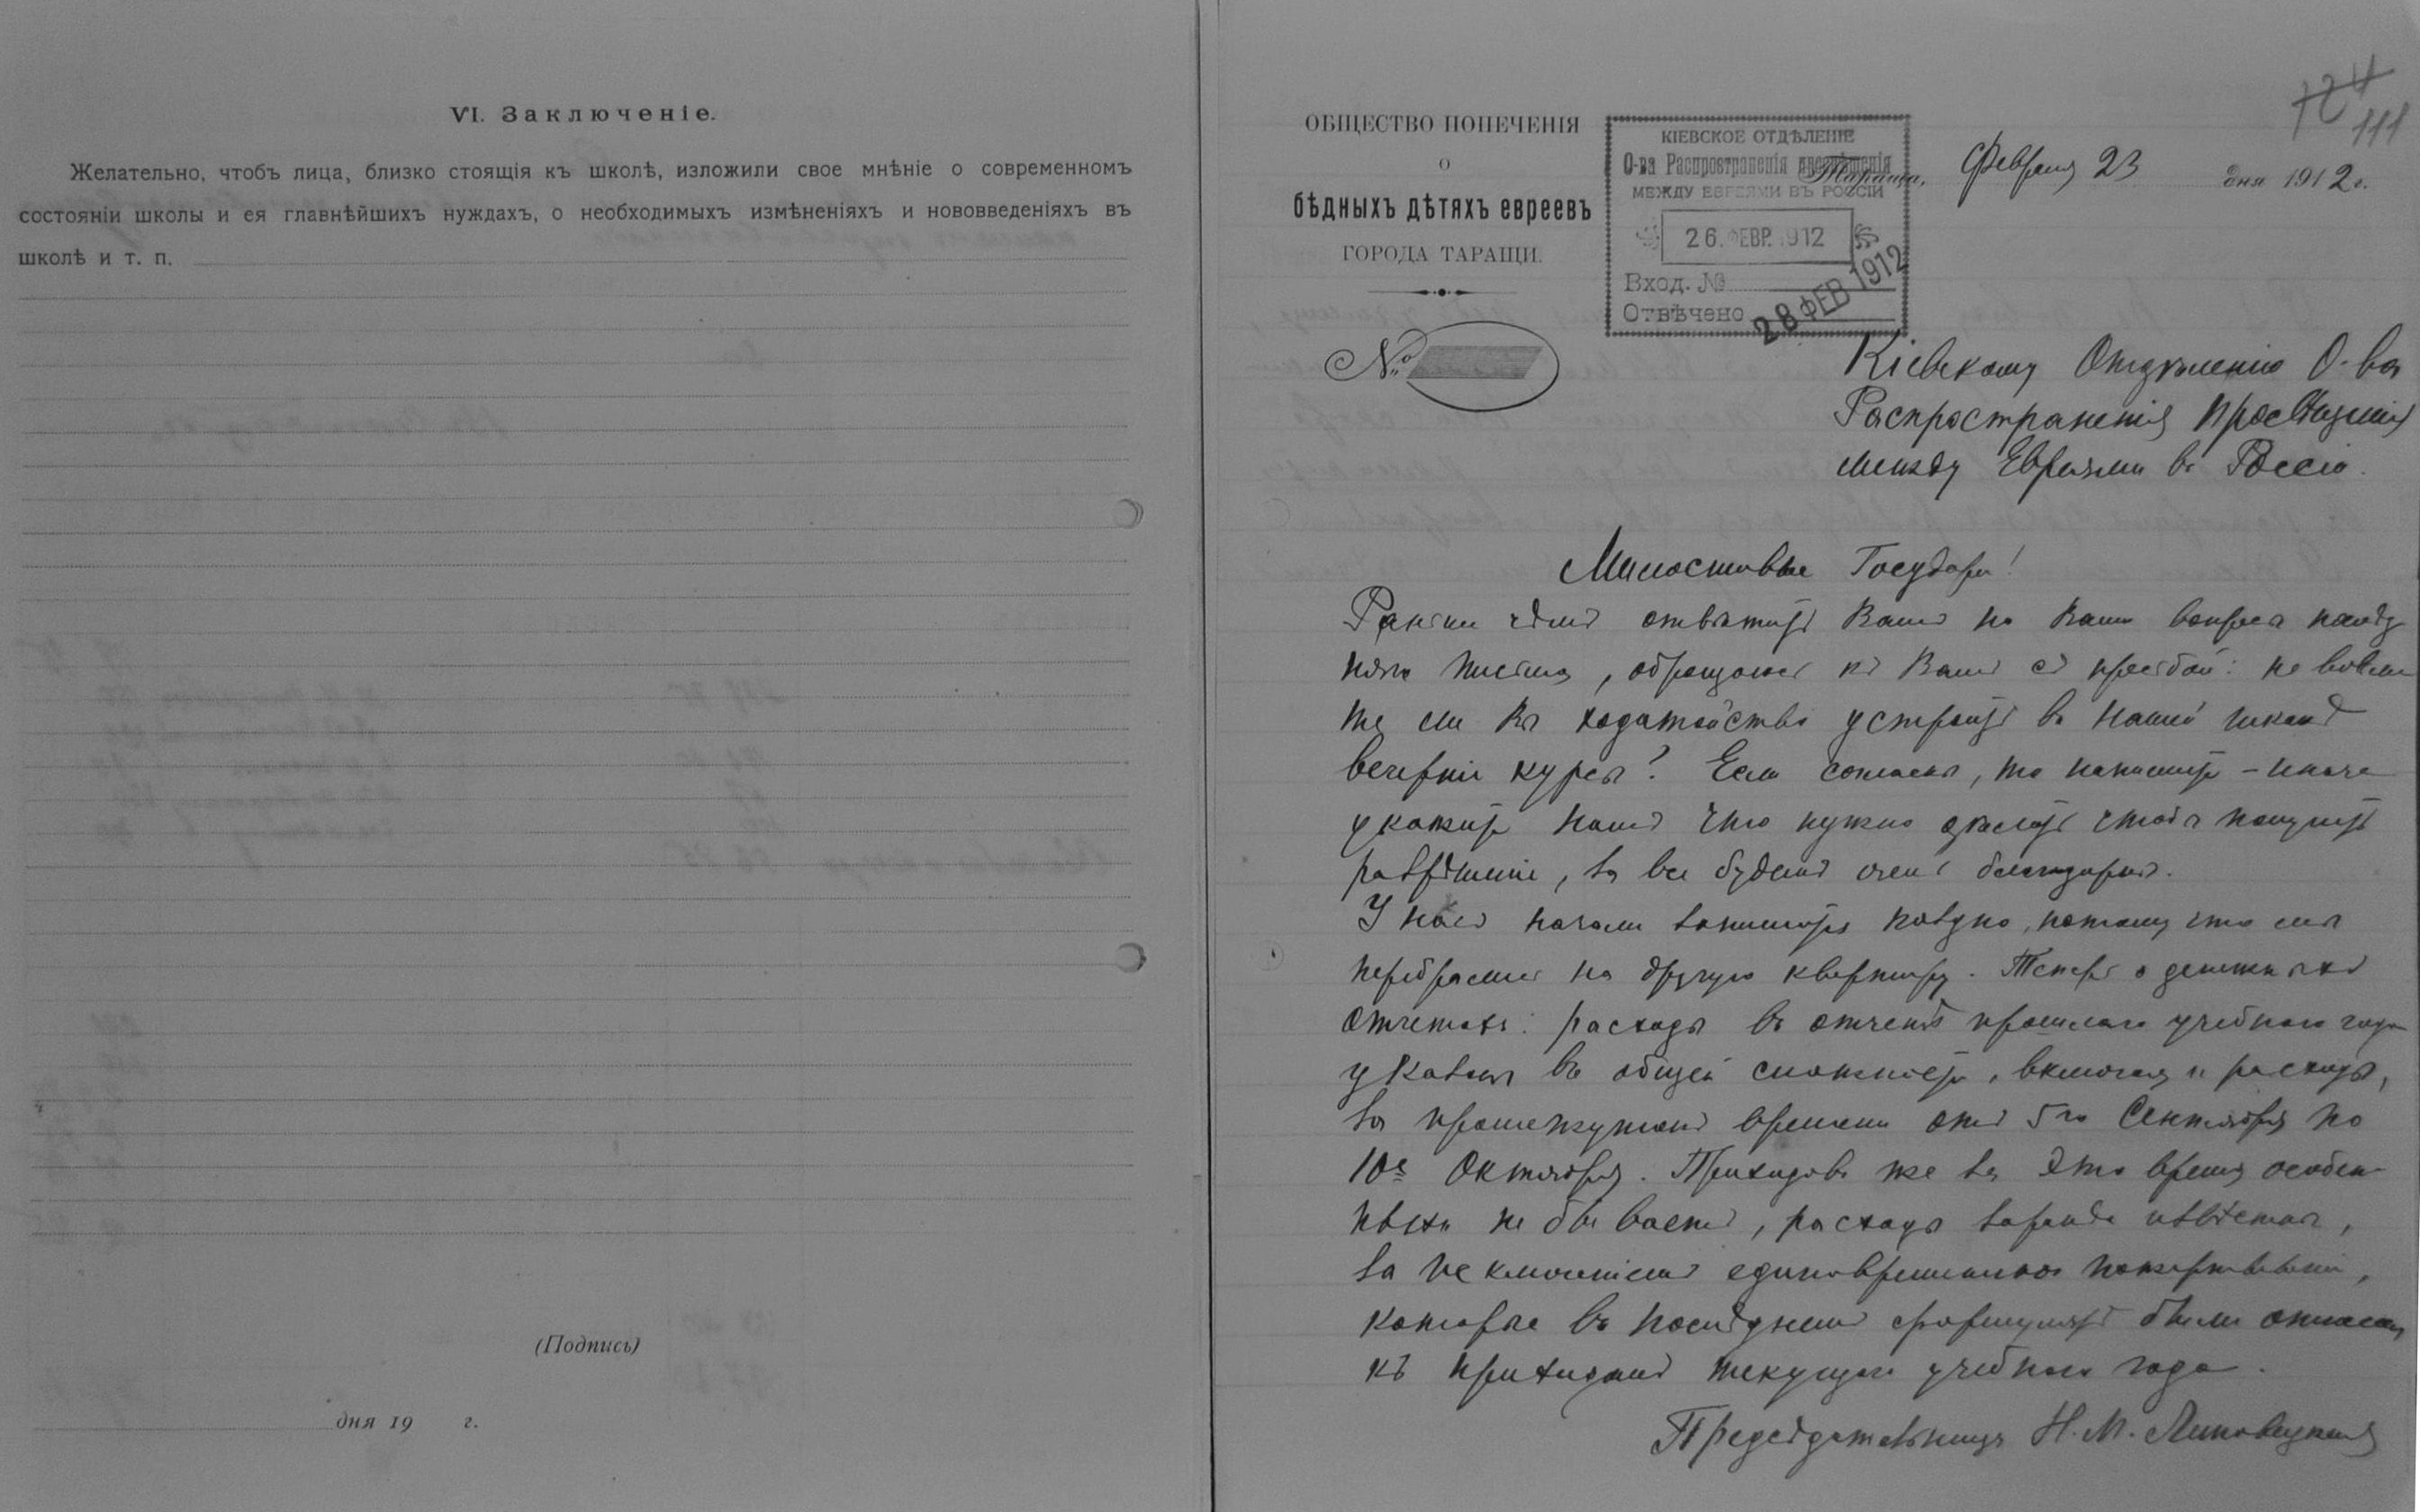 VI. Заключеніе.
Желательно, чтобъ лица, близко стоящія къ школѣ, изложили свое мнѣніе о современномъ
состояніи школы и ея главнѣйшихъ нуждахъ, о необходимыхъ измѣненіяхъ и нововведеніяхъ въ
школѣ и т. п.
(Подпись)
дня 19 г.
124
111
ОБЩЕСТВО ПОПЕЧЕНІЯ
о
бѣдныхъ дѣтяхъ евреевъ
ГОРОДА ТАРАЩИ.
№
КІЕВСКОЕ ОТДѢЛЕНІЕ
О-ва Распространенія просвѣщенія
МЕЖДУ ЕВРЕЯМИ ВЪ РОССІИ
26. ФЕВР. 1912
Вход. №
Отвѣчено 28 ФЕВ 1912
Тараща, Февраля 23 дня 1912 г.
Кіевскому Отдѣленію О-ва
Распространенія просвѣщенія
между Евреями въ Россіи.
Милостивые Государи!
Раньше чѣмъ отвѣтить Вамъ на Ваши вопросы послѣд
няго письма, обращаюсь къ Вамъ съ просьбой: не возьме
те ли Вы ходатайство устроить въ нашей школѣ
вечерніе курсы? Если согласны, то напишите – иначе
укажите намъ что нужно сдѣлать чтобы получить
разрѣшеніе, за все будемъ очень благодарны.
У насъ начали заниматься поздно, потому что мы
перебрались на другую квартиру. Теперь о денежныхъ
отчетахъ: расходы въ отчетѣ прошлаго учебнаго года
указаны въ общей сложности, включая и расходы,
за промежутокъ времени отъ 5го Сентября по
10е Октября. Приходовъ же за это время особен
ныхъ не бываетъ, расходы заранѣе извѣстны,
за исключеніемъ единовременныхъ пожертвованій,
которые въ послѣднемъ формулярѣ были отнесены
къ приходамъ текущаго учебнаго года.
Предсѣдательница Н. М. Липовецкая